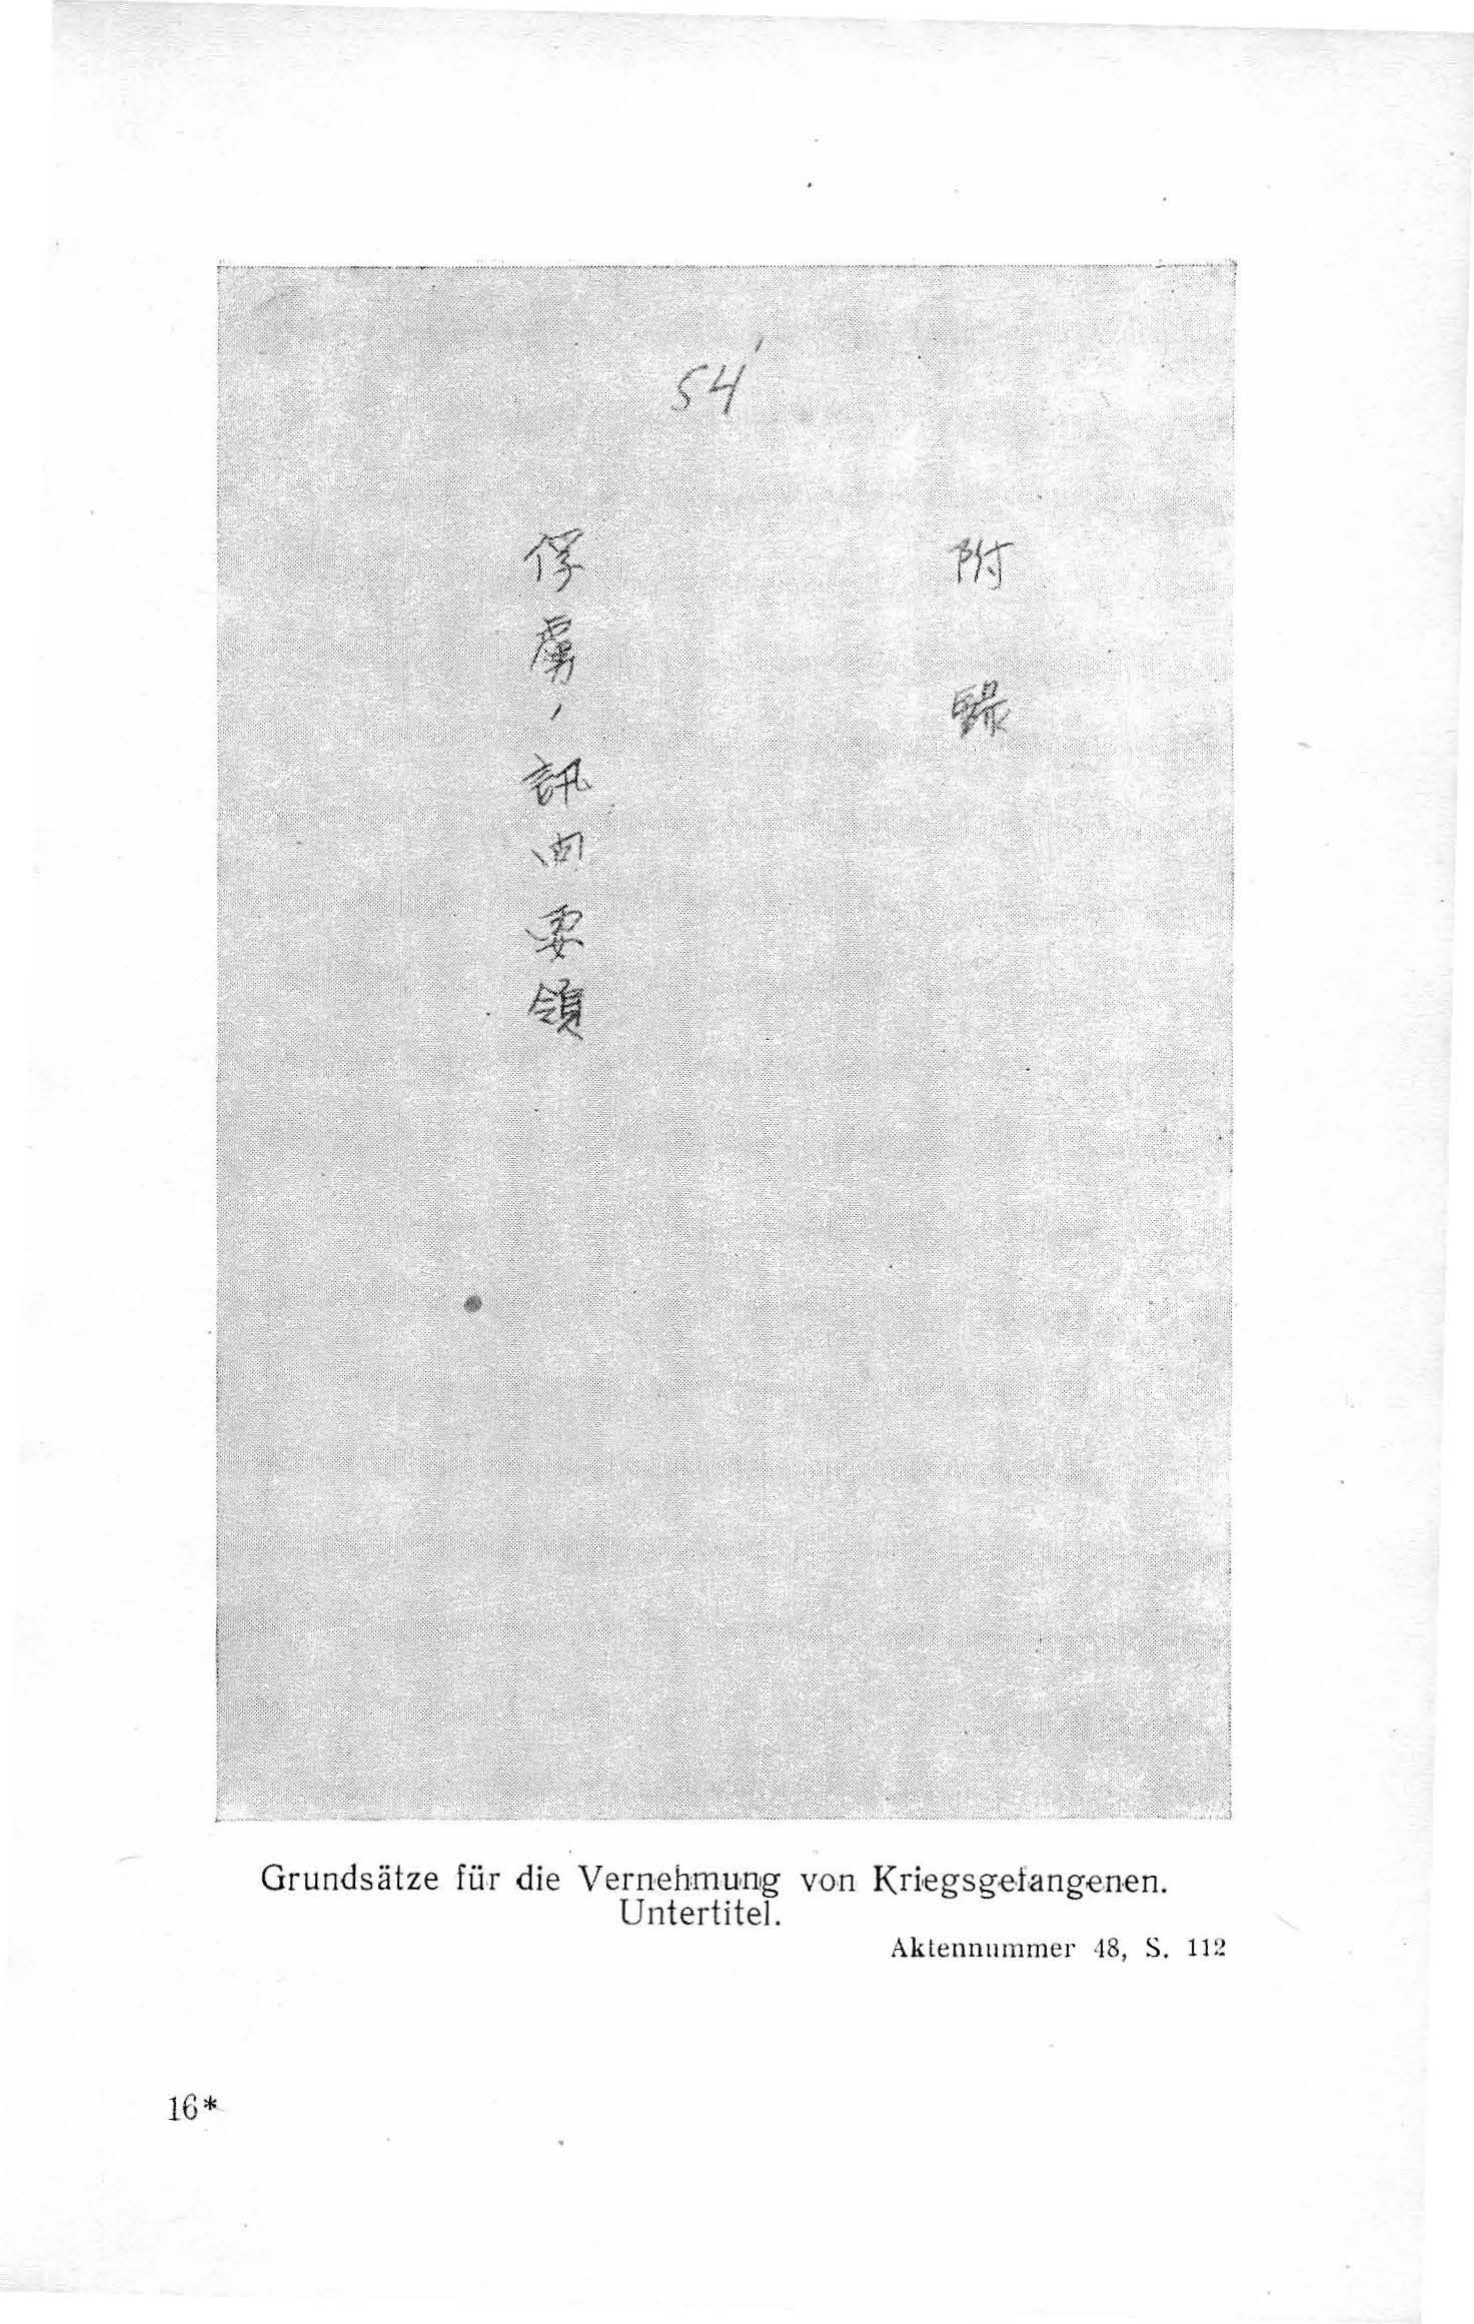 54
附錄
俘虜ノ訊問要領
Grundsätze für die Vernehmung von Kriegsgefangenen.
Untertitel.
Aktennummer 48, S. 112
16*